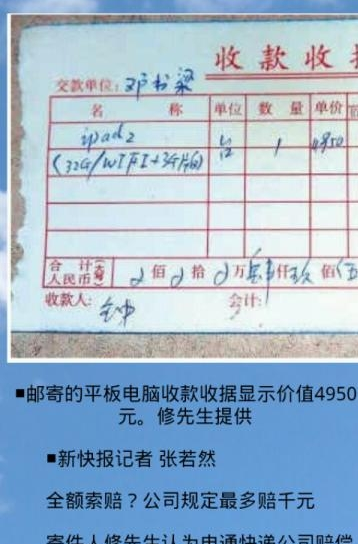 收款收
交款单位:邓书梁
名 称 单位 数量 单价
ipad2 台 1 4950
(32G/WIFI+3G版)
合计(大写)人民币 佰 拾 万 仟 玖佰 伍
收款人: 会计:
■邮寄的平板电脑收款收据显示价值4950
元。修先生提供
■新快报记者 张若然
全额索赔?公司规定最多赔千元
寄件人修先生认为申通快递公司赔偿